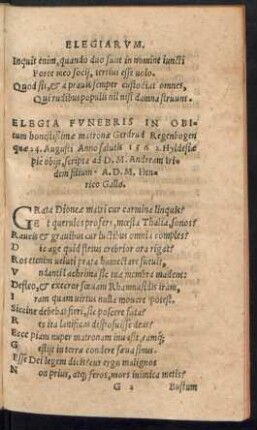 ELEGIARVM.
Inquit enim, quando duo sunt in nomine iuncti
Forte meo socij, tertius esse uolo.
Quod sit, & a prauis semper custodiat omnes,
Qui rudibus populis nil nisi damna struunt.
ELEGIA FVNEBRIS IN OBI-
tum honestissimæ matronæ Gerdrud Regenbogen
quæ 24. Augusti Anno salutis 1562. Hyldesiæ
pie obijt, scripta ad D. M. Andream Iri-
dem filium. A. D. M. Hen-
rico Gallo.
GRata Dioneæ matri cur carmina linquis?
Et querulos profers, mœsta Thalia, sonos?
Raucis & grauibus cur luctibus omnia comples?
D te age quid fletus crebrior ora rigat?
Ros etenim ueluti prata humectare sueuit,
V ndanti lachrima sic tua membra madent:
Defleo, & exteror sæuam Rhamnusidis iram,
I ram quam uirtus nulla mouere potest.
Siccine debebat fieri, sic poscere fata?
R es ita lætificas disposuisse deus?
Ecce piam nuper matronam inuasit, &
G estijt in terra condere sæua sinus.
Esse Dei legem dicitur ergo malignos
N on prius, atque feros, mors inimica metis?
G 2 Bustum